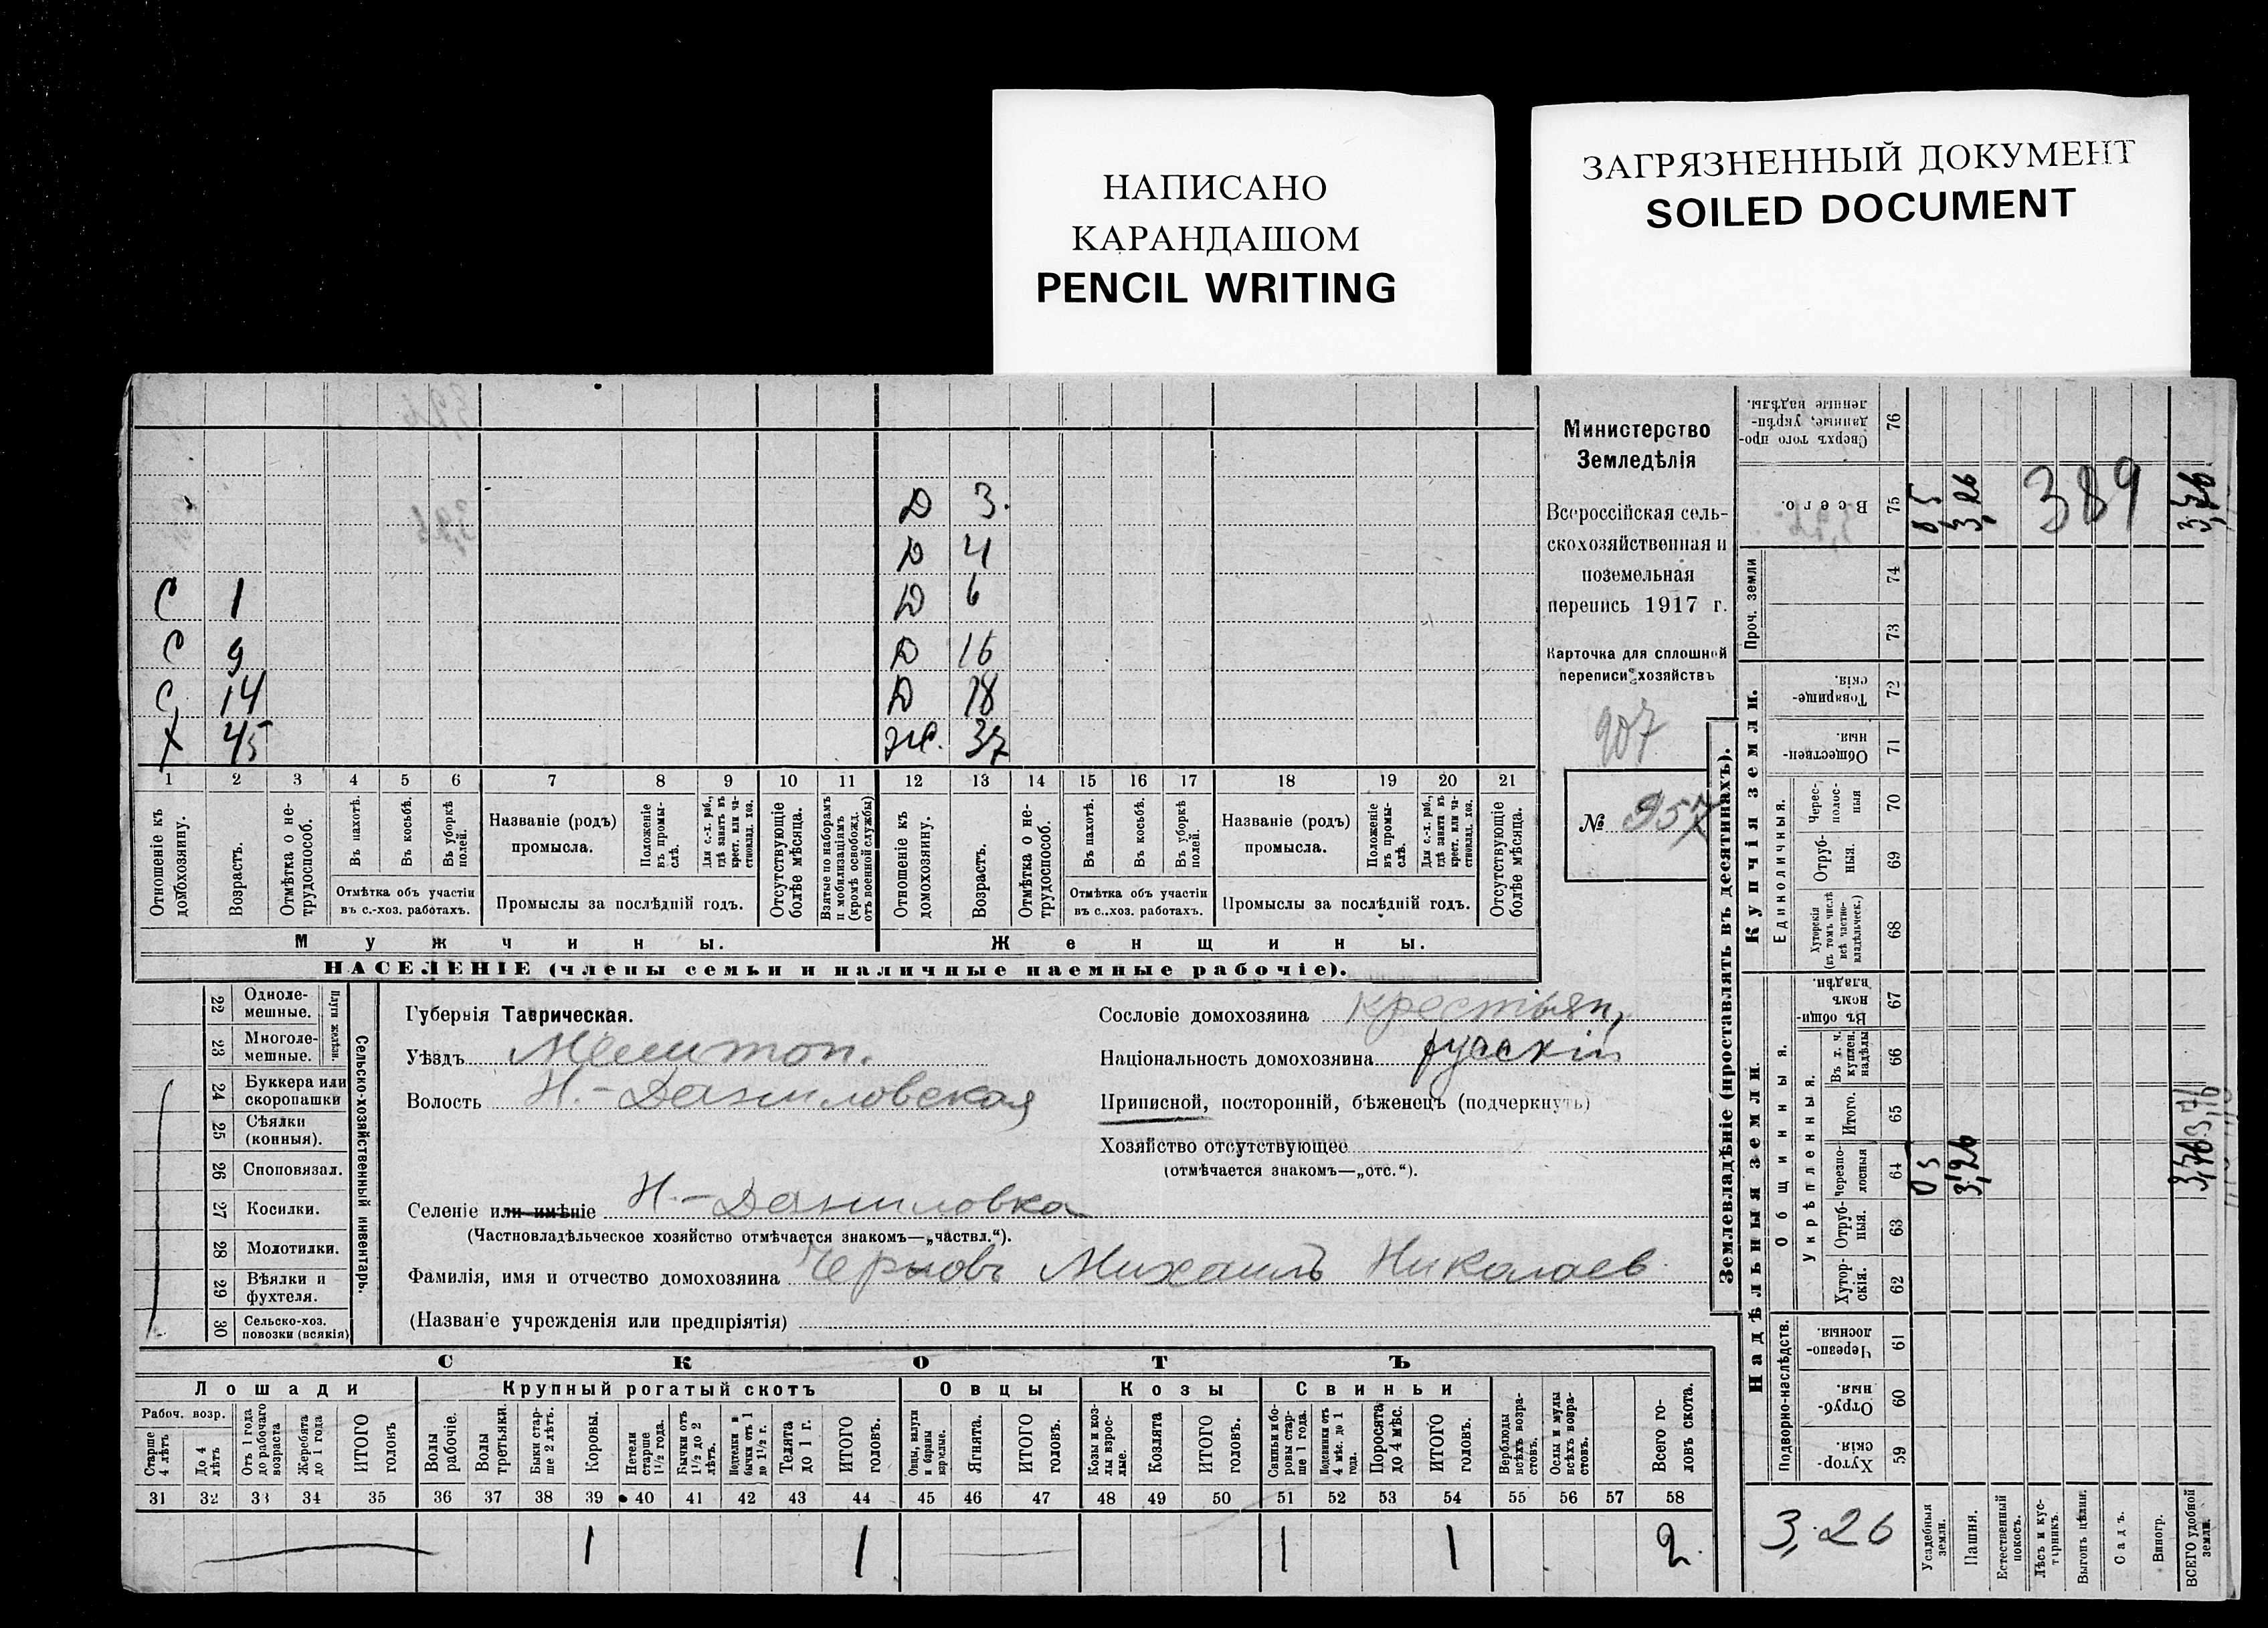 НАПИСАНО
КАРАНДАШОМ
PENCIL WRITING
ЗАГРЯЗНЕННЫЙ ДОКУМЕНТ
SOILED DOCUMENT
Министерство
Земледѣлія
Всероссійская сель-
скохозяйственная и
поземельная
перепись 1917 г.
Карточка для сплошной
переписи хозяйствъ
907
№ 957
Д 3.
Д 4
С 1 Д 6
С 9 Д 16
С 14 Д 18
Х 45 Ж. 37
1 2 3 4 5 6 7 8 9 10 11 12 13 14 15 16 17 18 19 20 21
Отношеніе къ домохозяину.
Возрастъ.
Отмѣтка о не-трудоспособ.
Въ пахотѣ.
Въ косьбѣ.
Въ уборкѣ полей.
Отмѣтка объ участіи
въ с.-хоз. работахъ.
Названіе (родъ)
промысла.
Положеніе въ промы-слѣ.
Для с.-х. раб., гдѣ занятъ въ крест. или ча-стновлад. хоз.
Промыслы за послѣдній годъ.
Отсутствующіе болѣе мѣсяца.
Взятые по наборамъ и мобилизаціямъ (кромѣ освобожд. отъ военной службы)
Отношеніе къ домохозяину.
Возрастъ.
Отмѣтка о не-трудоспособ.
Въ пахотѣ.
Въ косьбѣ.
Въ уборкѣ полей.
Отмѣтка объ участіи
въ с..хоз. работахъ.
Названіе (родъ)
промысла.
Положеніе въ промы-слѣ.
Для с.-х. раб., гдѣ занята въ крест. или ча-стновлад. хоз.
Промыслы за послѣдній годъ.
Отсутствующіе болѣе мѣсяца.
Мужчины. Женщины.
НАСЕЛЕНІЕ (члены семьи и наличные наемные рабочіе).
22 Одноле-мешные.
23 Многоле-мешные.
Плуги желѣзн.
24 Буккера или скоропашки
25 Сѣялки (конныя).
26 Сноповязал.
27 Косилки.
28 Молотилки.
29 Вѣялки и фухтеля.
30 Сельско-хоз. повозки (всякія)
Сельско-хозяйственный инвентарь.
Губернія Таврическая.
Уѣздъ Мелитоп.
Волость Н.-Даниловская
Селеніе или имѣніе Н.-Даниловка
(Частновладѣльческое хозяйство отмѣчается знакомъ—„частвл.“).
Фамилія, имя и отчество домохозяина Черновъ Михаилъ Николаев
(Названіе учрежденія или предпріятія)
Сословіе домохозяина крестьян,
Національность домохозяина русскій
Приписной, посторонній, бѣженецъ (подчеркнуть)
Хозяйство отсутствующее
(отмѣчается знакомъ—„отс.“).
СКОТЪ
Лошади Крупный рогатый скотъ Овцы Козы Свиньи
Рабоч. возр.
Старше 4 лѣтъ
До 4 лѣтъ
Отъ 1 года до рабочаго возраста
Жеребята до 1 года
ИТОГО головъ
Волы рабочіе.
Волы третьяки.
Быки стар-ше 2 лѣтъ.
Коровы.
Нетели старше 1½ года.
Бычки отъ 1½ до 2 лѣтъ.
Подтелки и бычки отъ 1 до 1½ г.
Телята до 1 г.
ИТОГО головъ.
Овцы, валухи и бараны взрослые.
Ягнята.
ИТОГО головъ.
Козы и коз-лы взрос-лые.
Козлята
ИТОГО головъ.
Свиньи и бо-ровы стар-ше 1 года.
Подсвинки отъ 4 мѣс. до 1 года.
Поросята до 4 мѣс.
ИТОГО головъ.
Верблюды всѣхъ возра-стовъ.
Ослы и мулы всѣхъ возра-стовъ.
Всего го-ловъ скота.
31 32 33 34 35 36 37 38 39 40 41 42 43 44 45 46 47 48 49 50 51 52 53 54 55 56 57 58
1 1 1 1 2
Землевладѣніе (проставлять въ десятинахъ).
Сверхъ того про-данные, укрѣп-ленные надѣлы. 76
Всего. 75 0,5 3,26 389 3,76
Проч. земли 74 73
Купчія земли.
Товарище-скія. 72
Обществен-ныя. 71
Единоличныя.
Черес-полос-ныя 70
Отруб-ныя. 69
Хуторскія (въ томъ числѣ всѣ частно-владѣльческ.) 68
Надѣльныя земли.
Общинныя.
Въ общин-номъ владѣн. 67
Укрѣпленныя.
Въ т. ч. куплен. надѣлы 66
Итого. 65
Черезпо-лосныя 64 0,5 3,26
Отруб-ныя. 63
Хутор-скія. 62
Подворно-наслѣдств.
Черезпо-лосныя 61
Отруб-ныя. 60
Хутор-скія. 59
3,26
Усадебныя земли.
Пашня.
Естественный покосъ.
Лѣсъ и кус-тарникъ.
Выгонъ цѣлин.
Садъ.
Виногр.
ВСЕГО удобной земли.